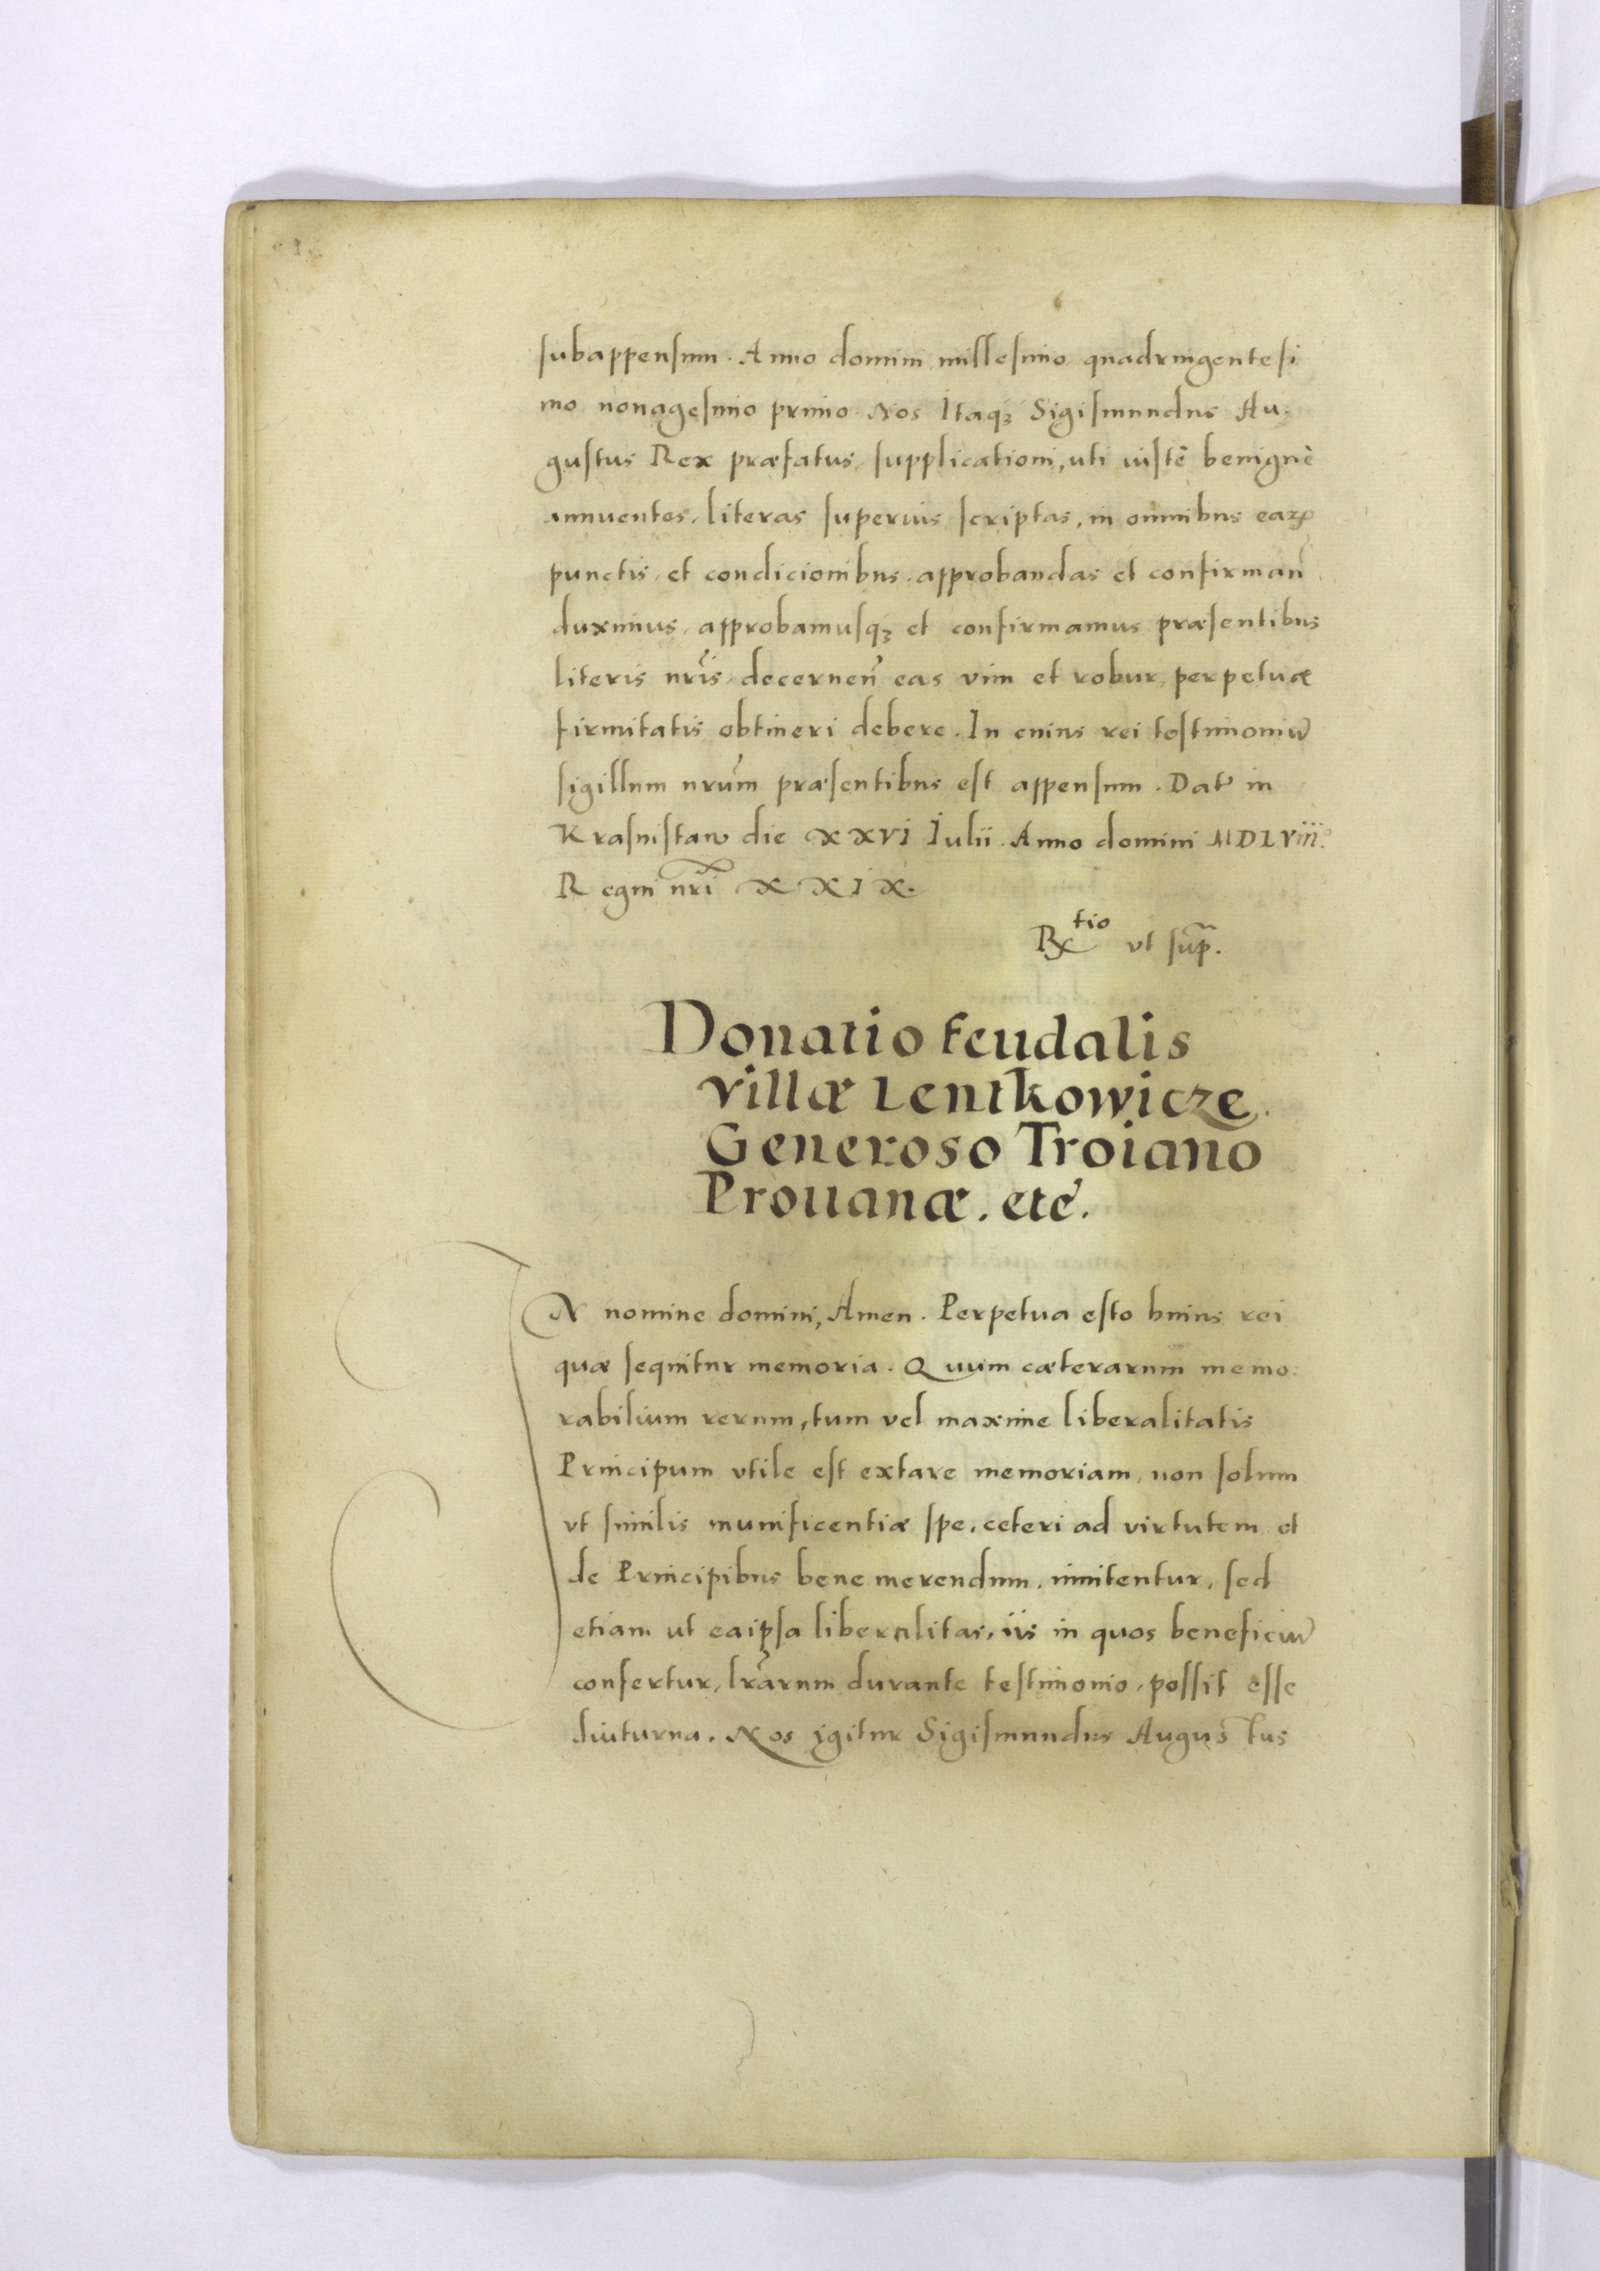 subappensum. Anno domini millesimo quadringentesi
mo nonagesimo primo. Nos Itaq₃ Sigismundus Au:
gustus Rex præfatus, supplicationi, uti iustè benignè
annuentes, literas superius scriptas, in omnibus earꝝ
punctis, et condicionibus, approbandas et confirmañ
duximus, approbamusq₃ et confirmamus præsentibus
literis nr̃is, decerneñ eas vim et robur perpetuæ
firmitatis obtineri debere. In cuius rei testimoniũ
sigillum nrũm præsentibus est appensum. Dat̃ in
Krasnistaw die XXVI Iulii. Anno domini MDLVIII.º
Regni nr̃i XXIX.
Rx tio vt sup̃.
Donatio feudalis
villæ Lentkowicze
Generoso Troiano
Prouanæ. etc̃.
IN nomine domini, Amen. Perpetua esto huius rei
quæ sequitur memoria. Quum cæterarum memo:
rabilium rerum, tum vel maxime liberalitatis
Principum vtile est extare memoriam, non solum
vt similis munificentiæ spe, ceteri ad virtutem et
de Principibus bene merendum, innitentur, sed
etiam ut eaipsa liberalitas, iis in quos beneficiũ
confertur, lr̃arum durante testimonio, possit esse
diuturna. Nos igitur Sigismundus Augustus